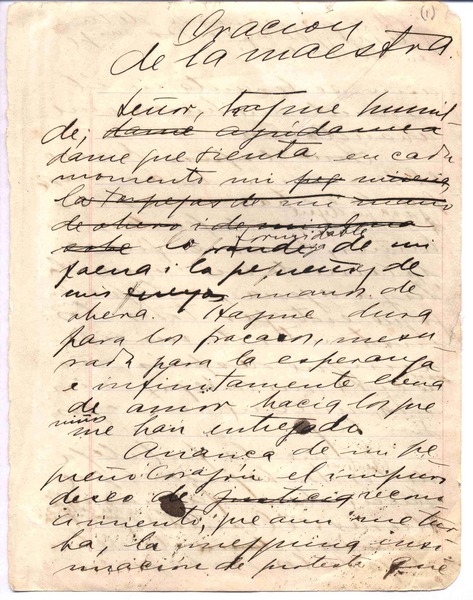 (1)
Oración
de la maestra.
Señor, hazme humil
de; dame ayúdame a
dame que sienta en cada
momento mi
la torpeza de mi mano
de obrera i de mi
lo formidable de mi
faena i lo pequeño de
mis manos de
obrera. Hazme dura
para los fracasos, mesu
rada para la esperanza
e infinitamente llena
de amor hacia los que
niños
me han entregado.
Arranca de mi pe
queño corazón el impuro
deseo de justicia recono
cimiento, que aun me tur
ba, la mezquina insi
nuación de protesta que